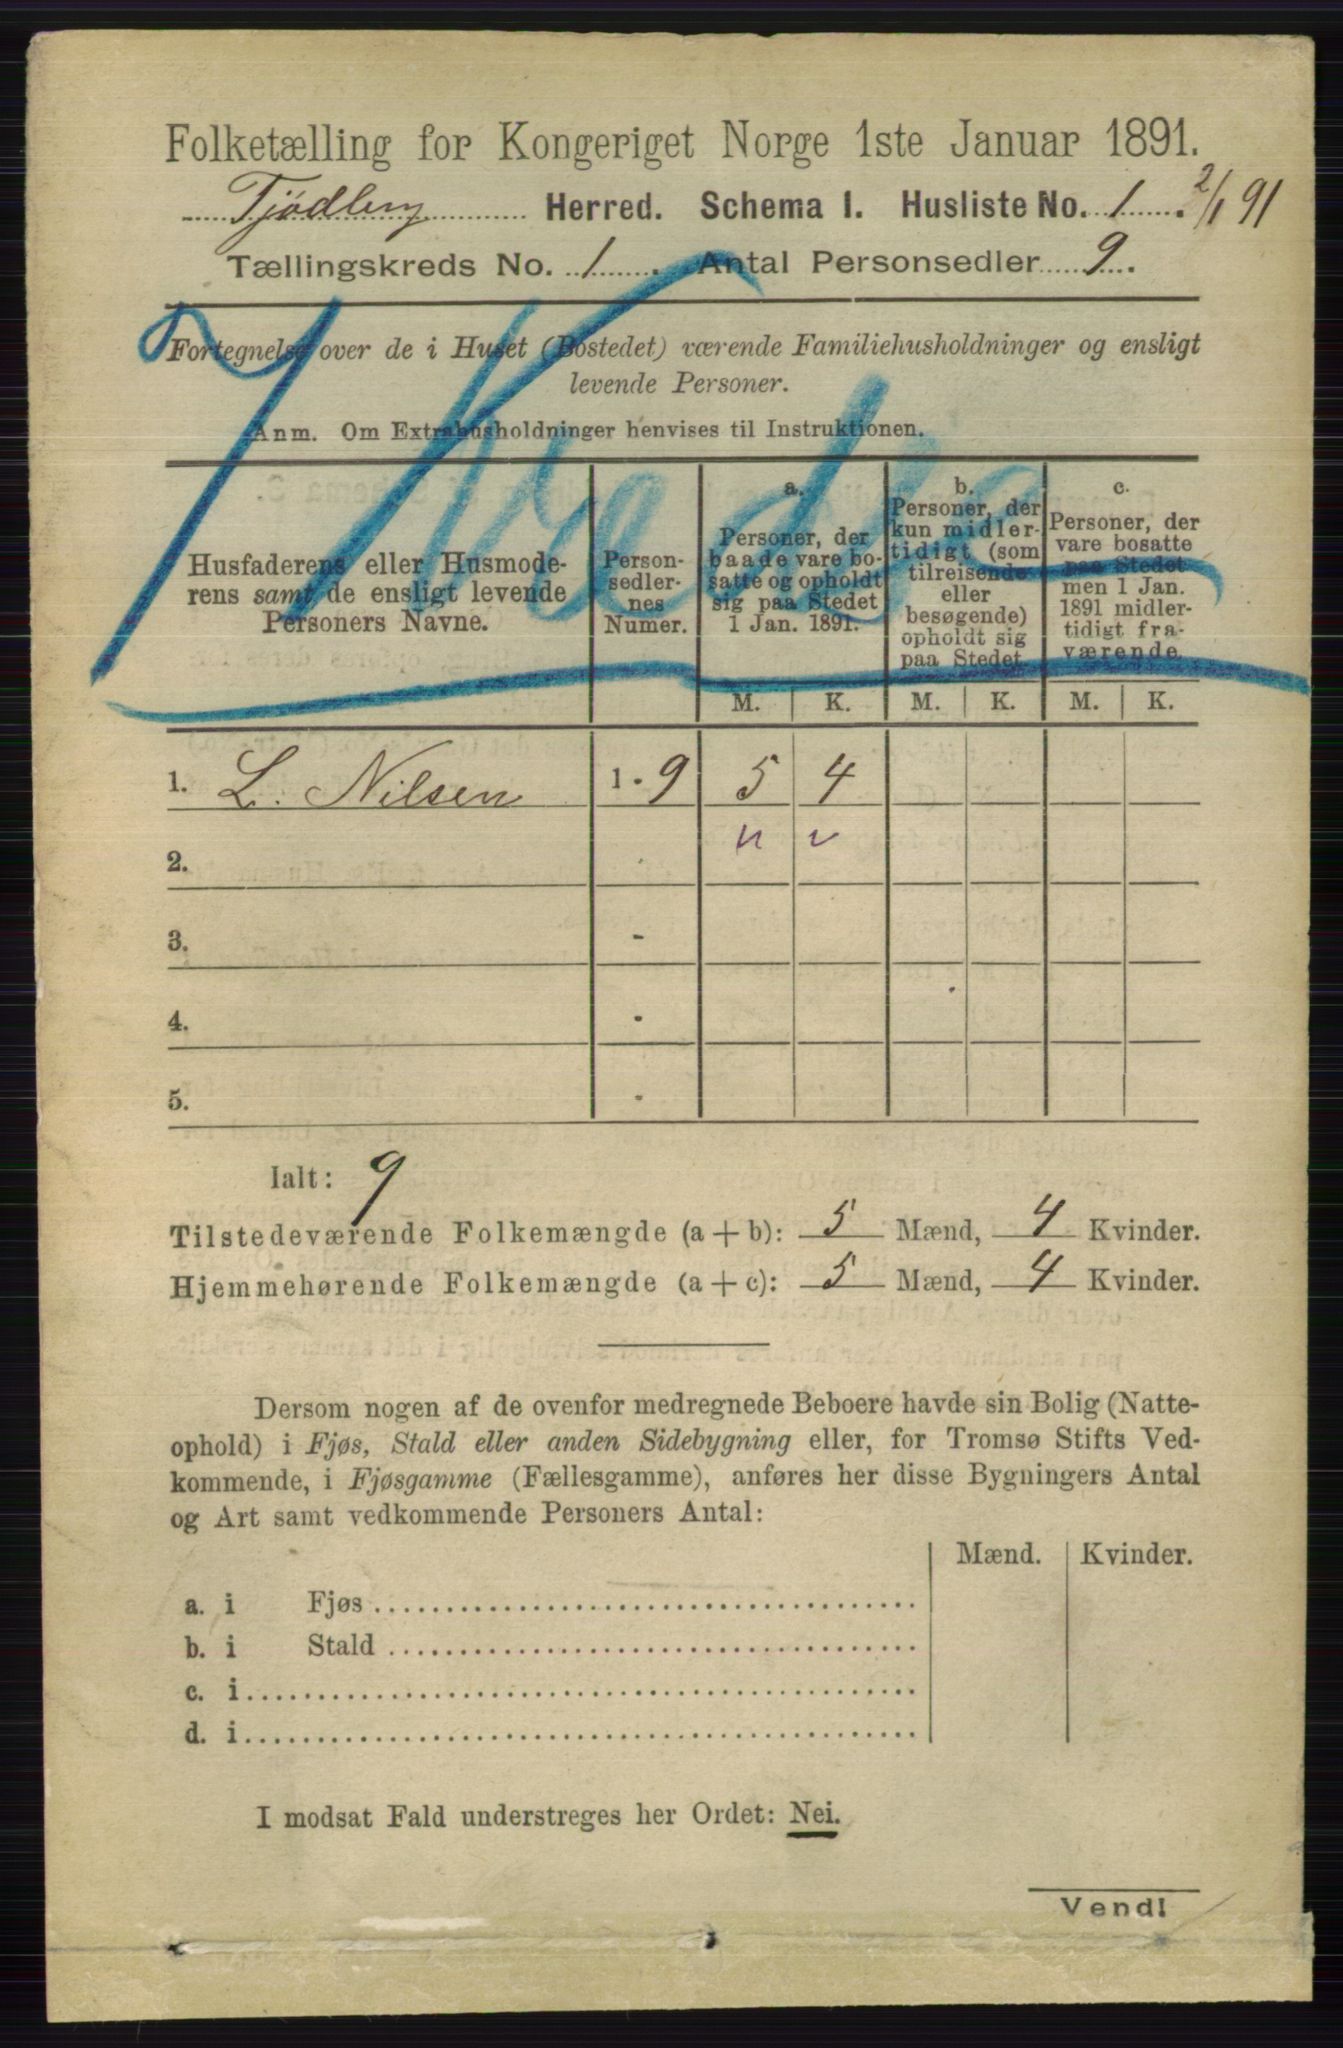 Folketælling for Kongeriget Norge 1ste Januar 1891.
Tjödling Herred. Schema I. Husliste No. 1. 2/1 91
Tællingskreds No. 1. Antal Personsedler 9.
Fortegnelse over de i Huset (Bostedet) værende Familiehusholdninger og ensligt
levende Personer.
Anm. Om Extrahusholdninger henvises til Instruktionen.
Husfaderens eller Husmode-
rens samt de ensligt levende
Personers Navne.
Person-
sedler-
nes
Numer.
a.
Personer, der
baade vare bo-
satte og opholdt
sig paa Stedet
1 Jan. 1891.
b.
Personer, der
kun midler-
tidigt (som
tilreisende
eller
besøgende)
opholdt sig
paa Stedet
c.
Personer, der
vare bosatte
paa Stedet
men 1 Jan.
1891 midler-
tidigt fra-
værende
M. K. M. K. M. K.
1. L. Nilsen 1 - 9 5 4
2.
3. -
4. -
5. -
Ialt: 9
Tilstedeværende Folkemængde (a + b): 5 Mænd, 4 Kvinder.
Hjemmehørende Folkemængde (a + c): 5 Mænd, 4 Kvinder.
Dersom nogen af de ovenfor medregnede Beboere havde sin Bolig (Natte-
ophold) i Fjøs, Stald eller anden Sidebygning eller, for Tromsø Stifts Ved-
kommende, i Fjøsgamme (Fællesgamme), anføres her disse Bygningers Antal
og Art samt vedkommende Personers Antal:
Mænd. Kvinder.
a. i Fjøs
b. i Stald
c. i
d. i
I modsat Fald understreges her Ordet: Nei.
Vend!